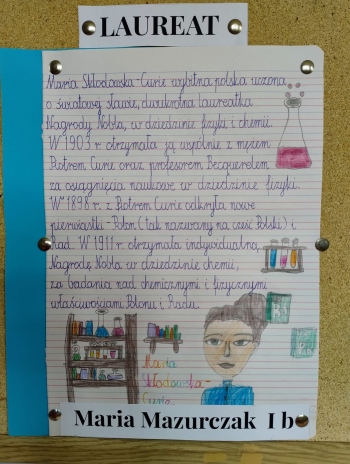 LAUREAT
Maria Skłodowska-Curie wybitna polska uczona
o światowej sławie, dwukrotna laureatka
Nagrody Nobla, w dziedzinie fizyki i chemii.
W 1903 r otrzymała ją wspólnie z mężem
Piotrem Curie oraz profesorem Becquerelem
za osiągnięcia naukowe w dziedzinie fizyki.
W 1898 r. z Piotrem Curie odkryła nowe
pierwiastki - Polon (tak nazwany na cześć Polski) i
Rad. W 1911 r. otrzymała indywidualną,
Nagrodę Nobla w dziedzinie chemii,
za badania nad chemicznymi i fizycznymi
właściwościami Polonu i Radu.
Maria
Skłodowska-
Curie.
Maria Mazurczak I b